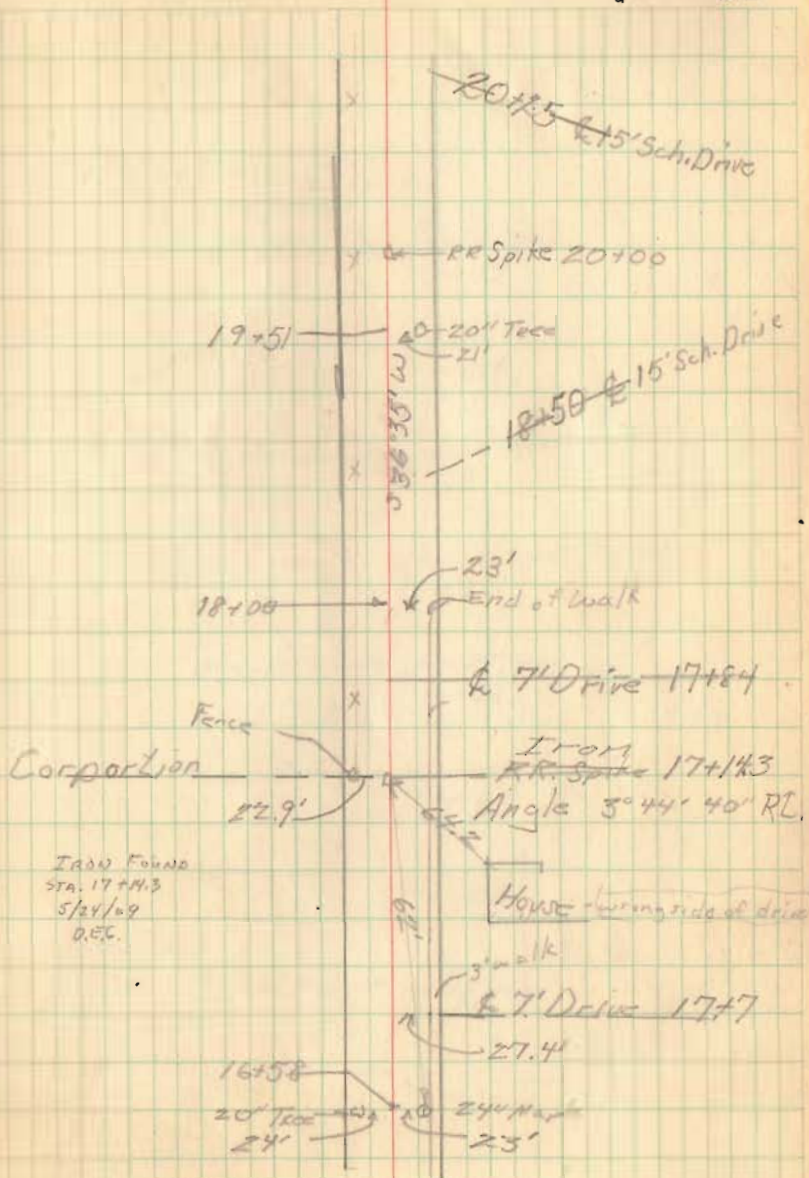 20+25 ℄ 15' Sch. Drive
RR Spike 20+00
19+51
20" Tree
21'
S 36° 35' W
18+50 ℄ 15' Sch. Drive
23'
18+00
End of Walk
℄ 7' Drive 17+84
Fence
Corportion
Iron
R.R. Spike 17+14.3
22.9'
64.2
Angle 3° 44' 40" Rt.
IRON FOUND
STA. 17+14.3
5/24/69
D.E.C.
House - wrong side of drive
3' walk
℄ 7' Drive 17+7
27.4'
16+58
20" Tree
24"
24'
23'